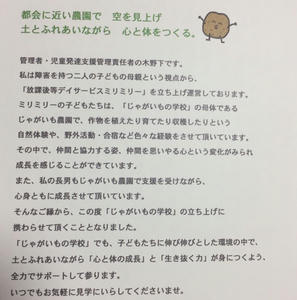 都会に近い農園で 空を見上げ
土とふれあいながら 心と体をつくる。
管理者・児童発達支援管理責任者の木野下です。
私は障害を持つ二人の子どもの母親という視点から、
「放課後等デイサービスミリミリー」を立ち上げ運営しております。
ミリミリーの子どもたちは、「じゃがいもの学校」の母体である
じゃがいも農園で、作物を植えたり育てたり収穫したりという
自然体験や、野外活動・合宿など色々な経験をさせて頂いています。
その中で、仲間と協力する姿、仲間を思いやる心という変化がみられ
成長を感じることができています。
また、私の長男もじゃがいも農園で支援を受けながら、
心身ともに成長させて頂いています。
そんなご縁から、この度「じゃがいもの学校」の立ち上げに
携わらせて頂くこととなりました。
「じゃがいもの学校」でも、子どもたちに伸び伸びとした環境の中で、
土とふれあいながら「心と体の成長」と「生き抜く力」が身につくよう、
全力でサポートして参ります。
いつでもお気軽に見学にいらしてくださいませ。